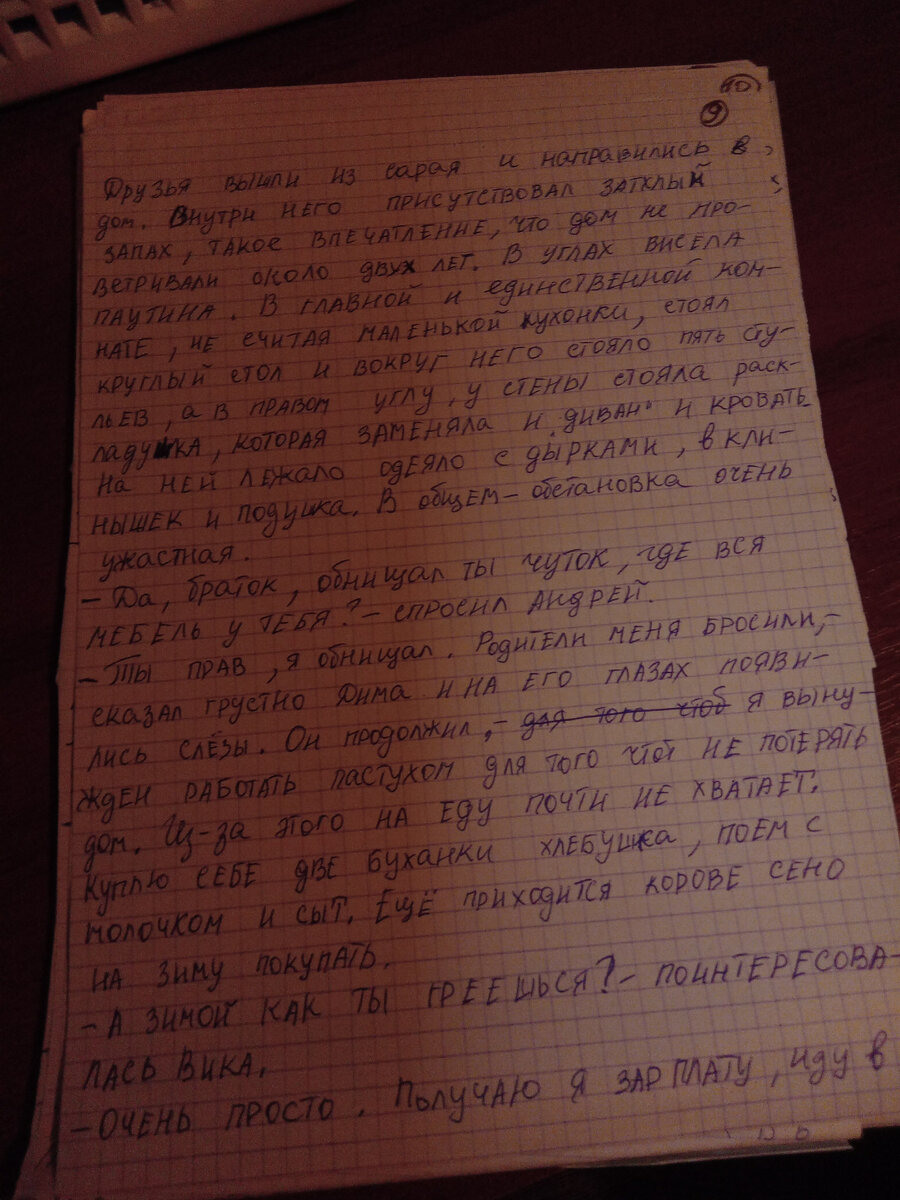 10
9
Друзья вышли из сарая и направились в
дом. Внутри него присутствовал затхлый
запах, такое впечатление, что дом не про-
ветривали около двух лет. В углах висела
паутина. В главной и единственной ком-
нате, не считая маленькой кухонки, стоял
круглый стол и вокруг него стояло пять сту-
льев, а в правом углу, у стены стояла раск-
ладушка, которая заменяла и „диван" и кровать
На ней лежало одеяло с дырками, в кли-
нышек и подушка. В общем – обстановка очень
ужастная.
– Да, браток, обнищал ты чуток, где вся
мебель у тебя? – спросил Андрей.
– Ты прав, я обнищал. Родители меня бросили, –
сказал грустно Дима и на его глазах появи-
лись слёзы. Он продолжил, – для того чтоб я выну-
жден работать пастухом для того чтоб не потерять
дом. Из-за этого на еду почти не хватает.
Куплю себе две буханки хлебушка, поем с
молочком и сыт. Ещё приходится корове сено
на зиму покупать.
– А зимой как ты греешься? – поинтересова-
лась Вика.
– Очень просто. Получаю я зарплату, иду в